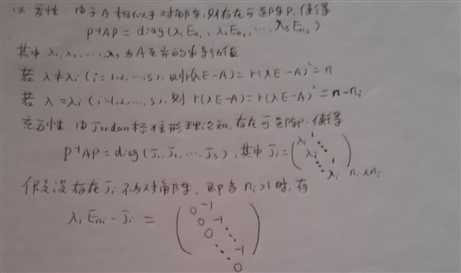 必要性 由于A相似于对角阵,则存在可逆阵P,使得
P⁻¹AP = diag(λ₁Eₙ₁, λ₂Eₙ₂, ..., λₛEₙₛ)
其中 λ₁, λ₂, ..., λₛ 为A互异的特征值
若 λ≠λᵢ (i=1,2,...,s), 则r(λE-A)=r(λE-A)²=n
若 λ=λᵢ (i=1,2,...,s), 则 r(λE-A)=r(λE-A)²=n-nᵢ
充分性 由Jordan标准形理论知,存在可逆阵P,使得
P⁻¹AP = diag(J₁, J₂, ... Jₛ), 其中 Jᵢ = (λᵢ 1 λᵢ ⋱ ⋱ 1 λᵢ) nᵢ×nᵢ
假设存在Jᵢ不为对角阵, 即当nᵢ>1时,有
λᵢEₙᵢ - Jᵢ = (0 -1 0 -1 0 ⋱ ⋱ -1 0)